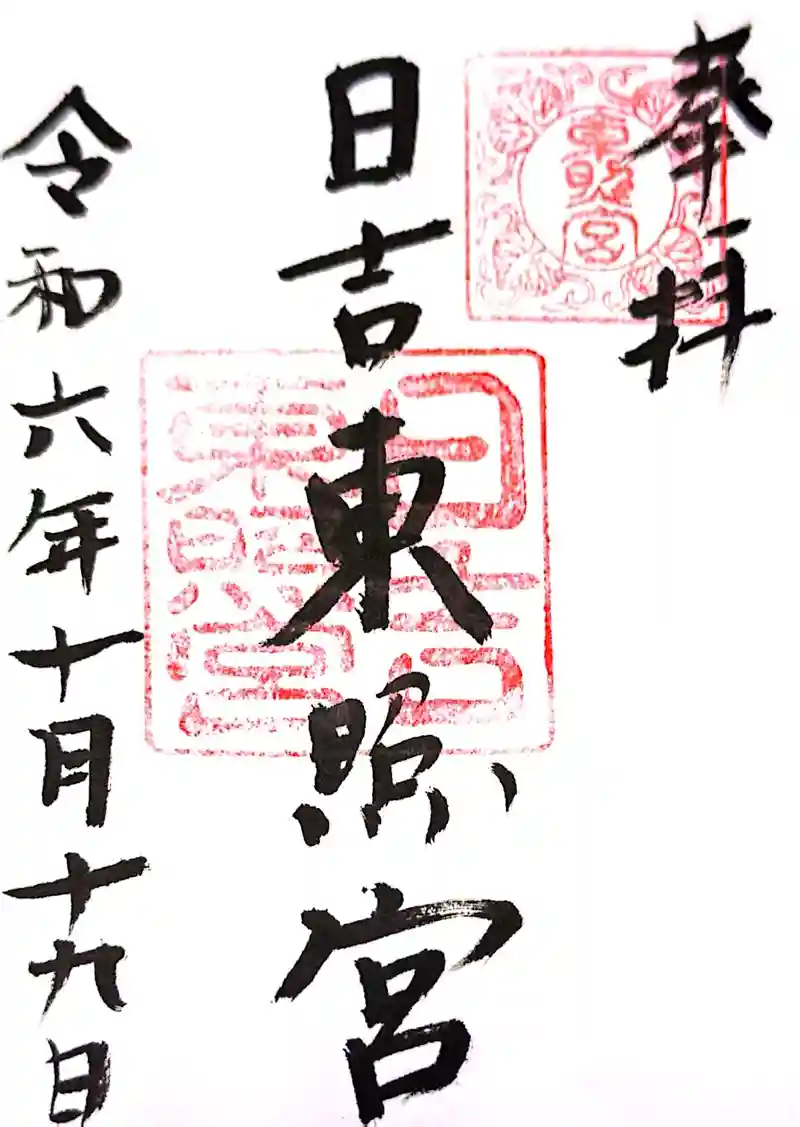 奉拝
東照宮
日吉東照宮
日吉
東照宮
令和六年十月十九日